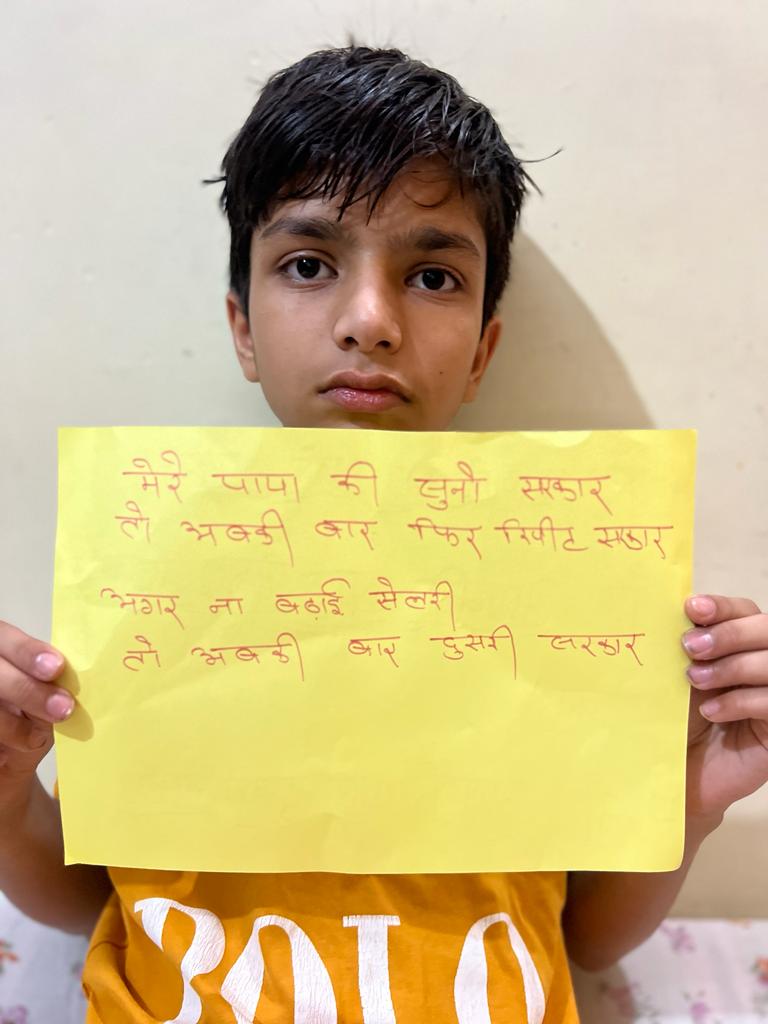 मेरे पापा की सुनो सरकार
तो अबकी बार फिर रिपीट सरकार
अगर ना बढ़ाई सेलरी
तो अबकी बार दुसरी सरकार
BOLO